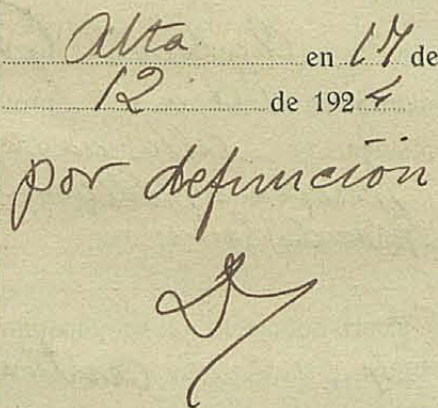 Alta en 17 de
12 de 1924
por defunción